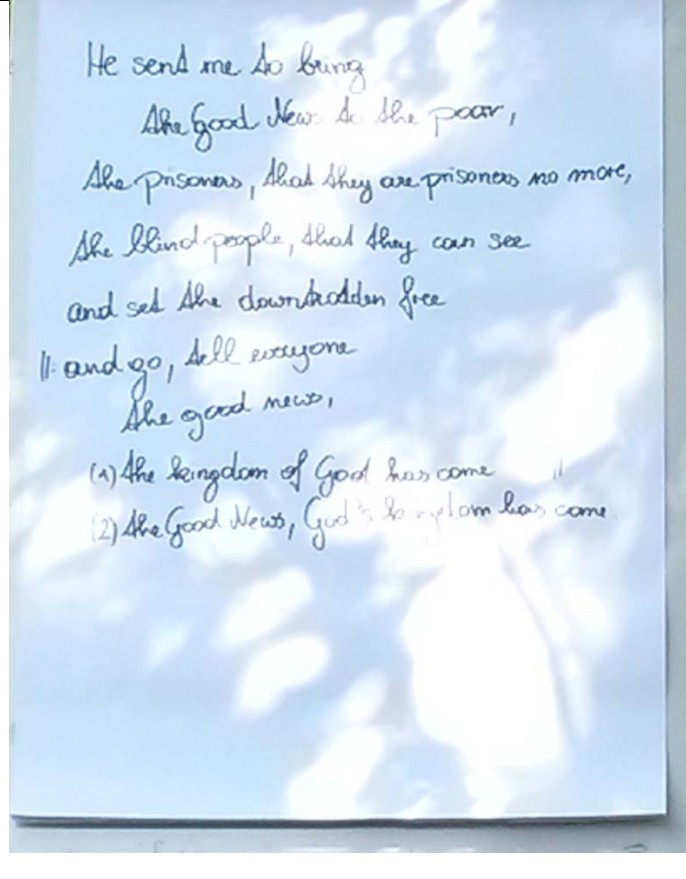 He send me to bring
the Good News to the poor,
the prisoners, that they are prisoners no more,
the blind people, that they can see
and set the downtrodden free
||: and go, tell everyone
the good news,
(1) the kingdom of God has come :||
(2) the Good News, God's kingdom has come